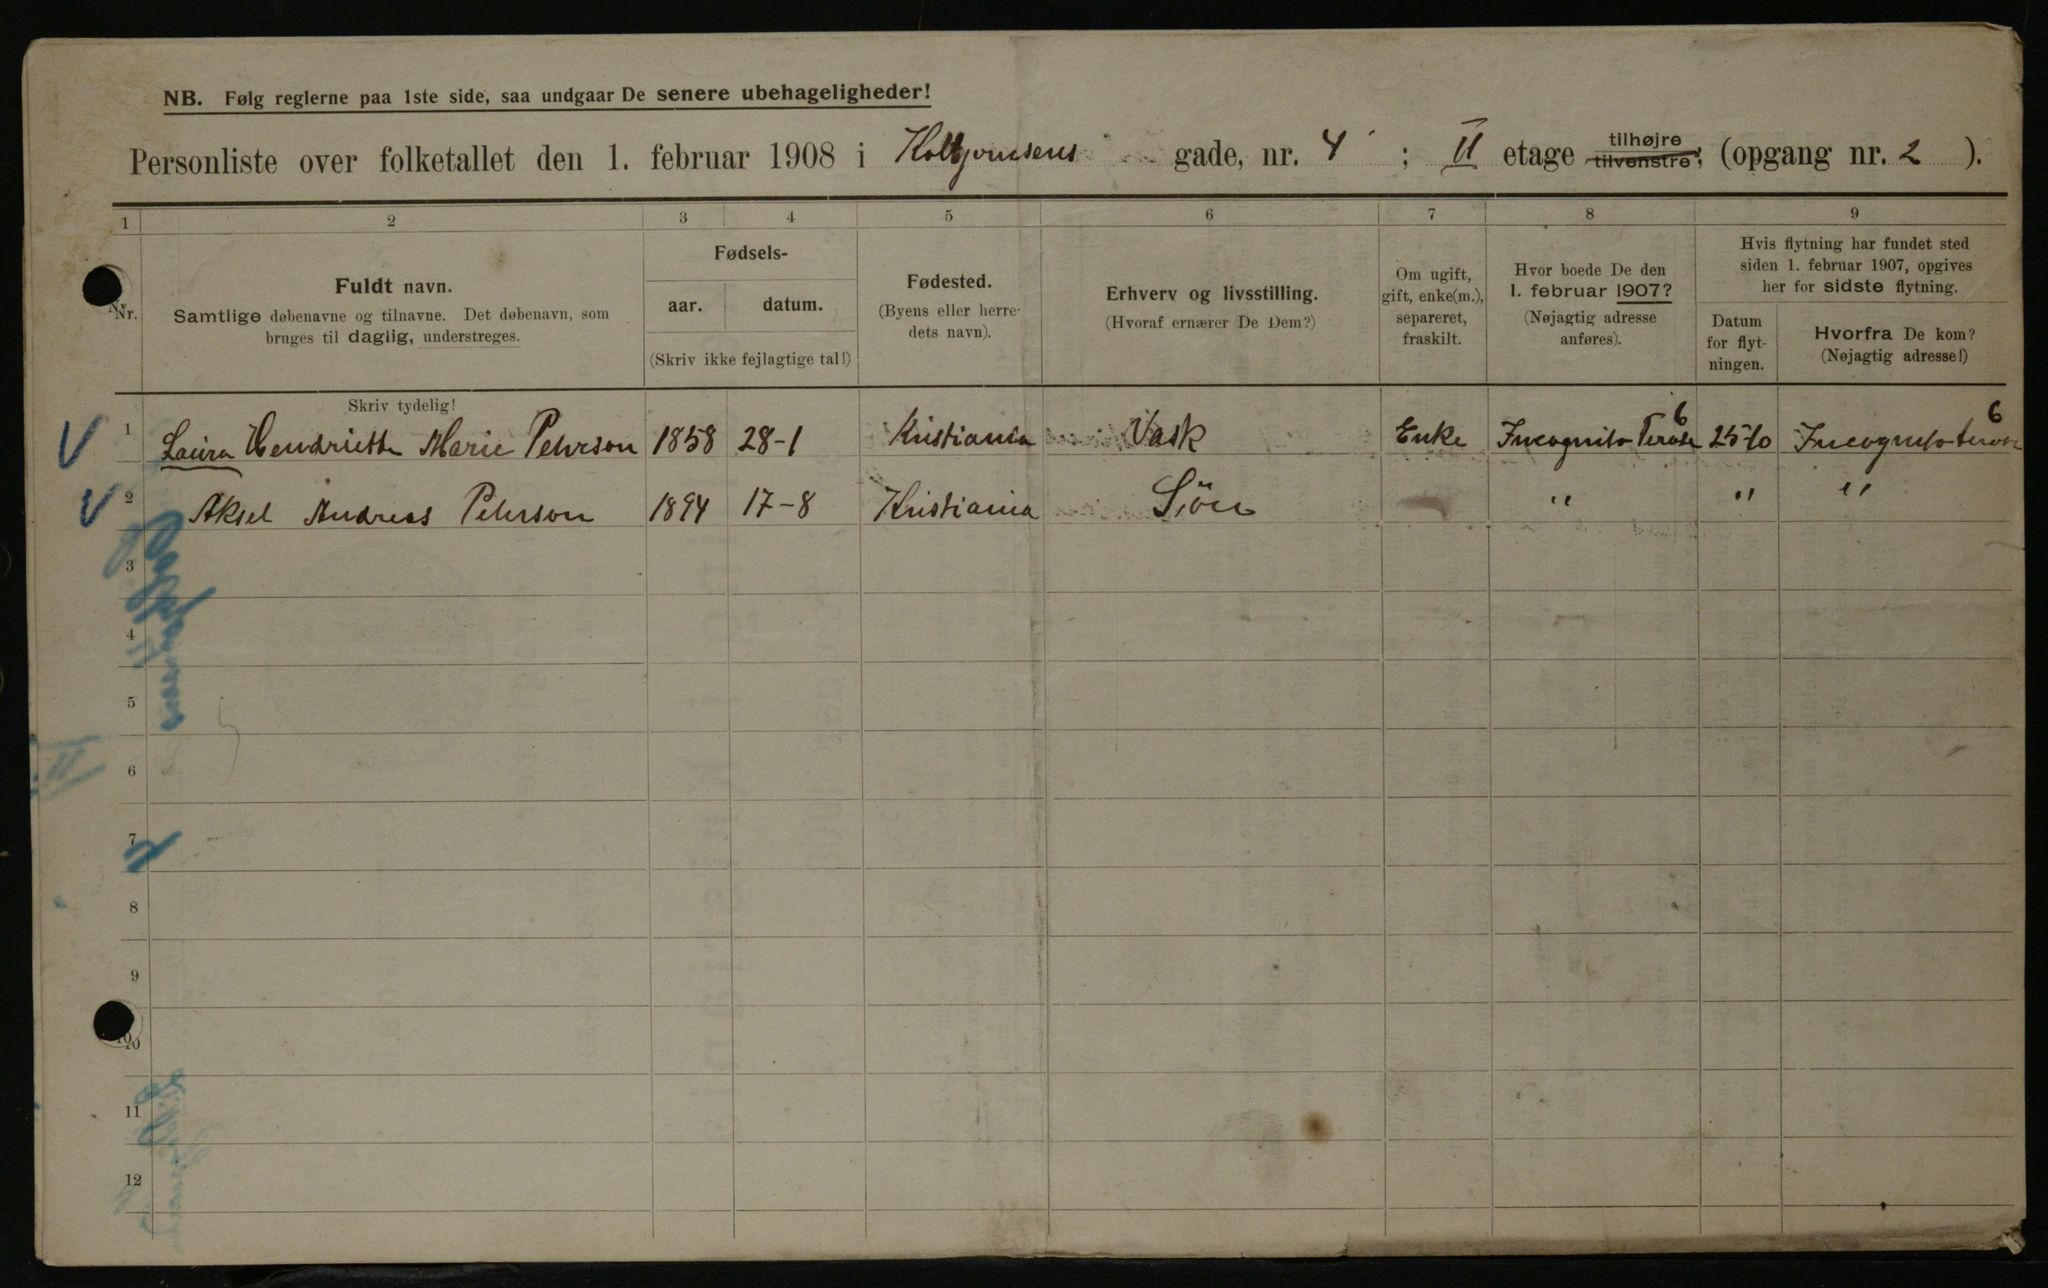 NB. Følg reglerne paa 1ste side, saa undgaar De senere ubehageligheder!
Personliste over folketallet den 1. februar 1908 i Koltjonsens gade, nr. 4 ; II etage tilhøjre tilvenstre, (opgang nr. 2 ).
1 2 3 4 5 6 7 8 9
Nr.
Fuldt navn.
Samtlige døbenavne og tilnavne. Det døbenavn, som
bruges til daglig, understreges.
Fødsels-
aar. datum.
(Skriv ikke fejlagtige tal!)
Fødested.
(Byens eller herre-
dets navn).
Erhverv og livsstilling.
(Hvoraf ernærer De Dem?)
Om ugift,
gift, enke(m.),
separeret,
fraskilt.
Hvor boede De den
1. februar 1907?
(Nøjagtig adresse
anføres).
Hvis flytning har fundet sted
siden 1. februar 1907, opgives
her for sidste flytning.
Datum
for flyt-
ningen.
Hvorfra De kom?
(Nøjagtig adresse!)
Skriv tydelig!
1 Laura Hendriette Marie Pehrson 1858 28-1 Kristiania Vask Enke Incognito Terase 6 25-10 Incognito terase 6
2 Aksel Andreas Pehrson 1894 17-8 Kristiania Søn " " "
3
4
5
6
7
8
9
10
11
12